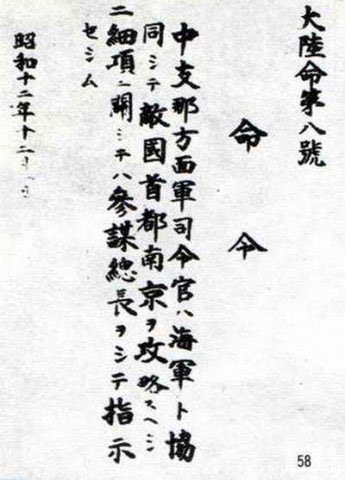 大陸命第八號
命令
中支那方面軍司令官ハ海軍ト協
同シテ敵國首都南京ヲ攻略スヘシ
二細項ニ關シテハ參謀總長ヲシテ指示
セシム
昭和十二年十二月
58